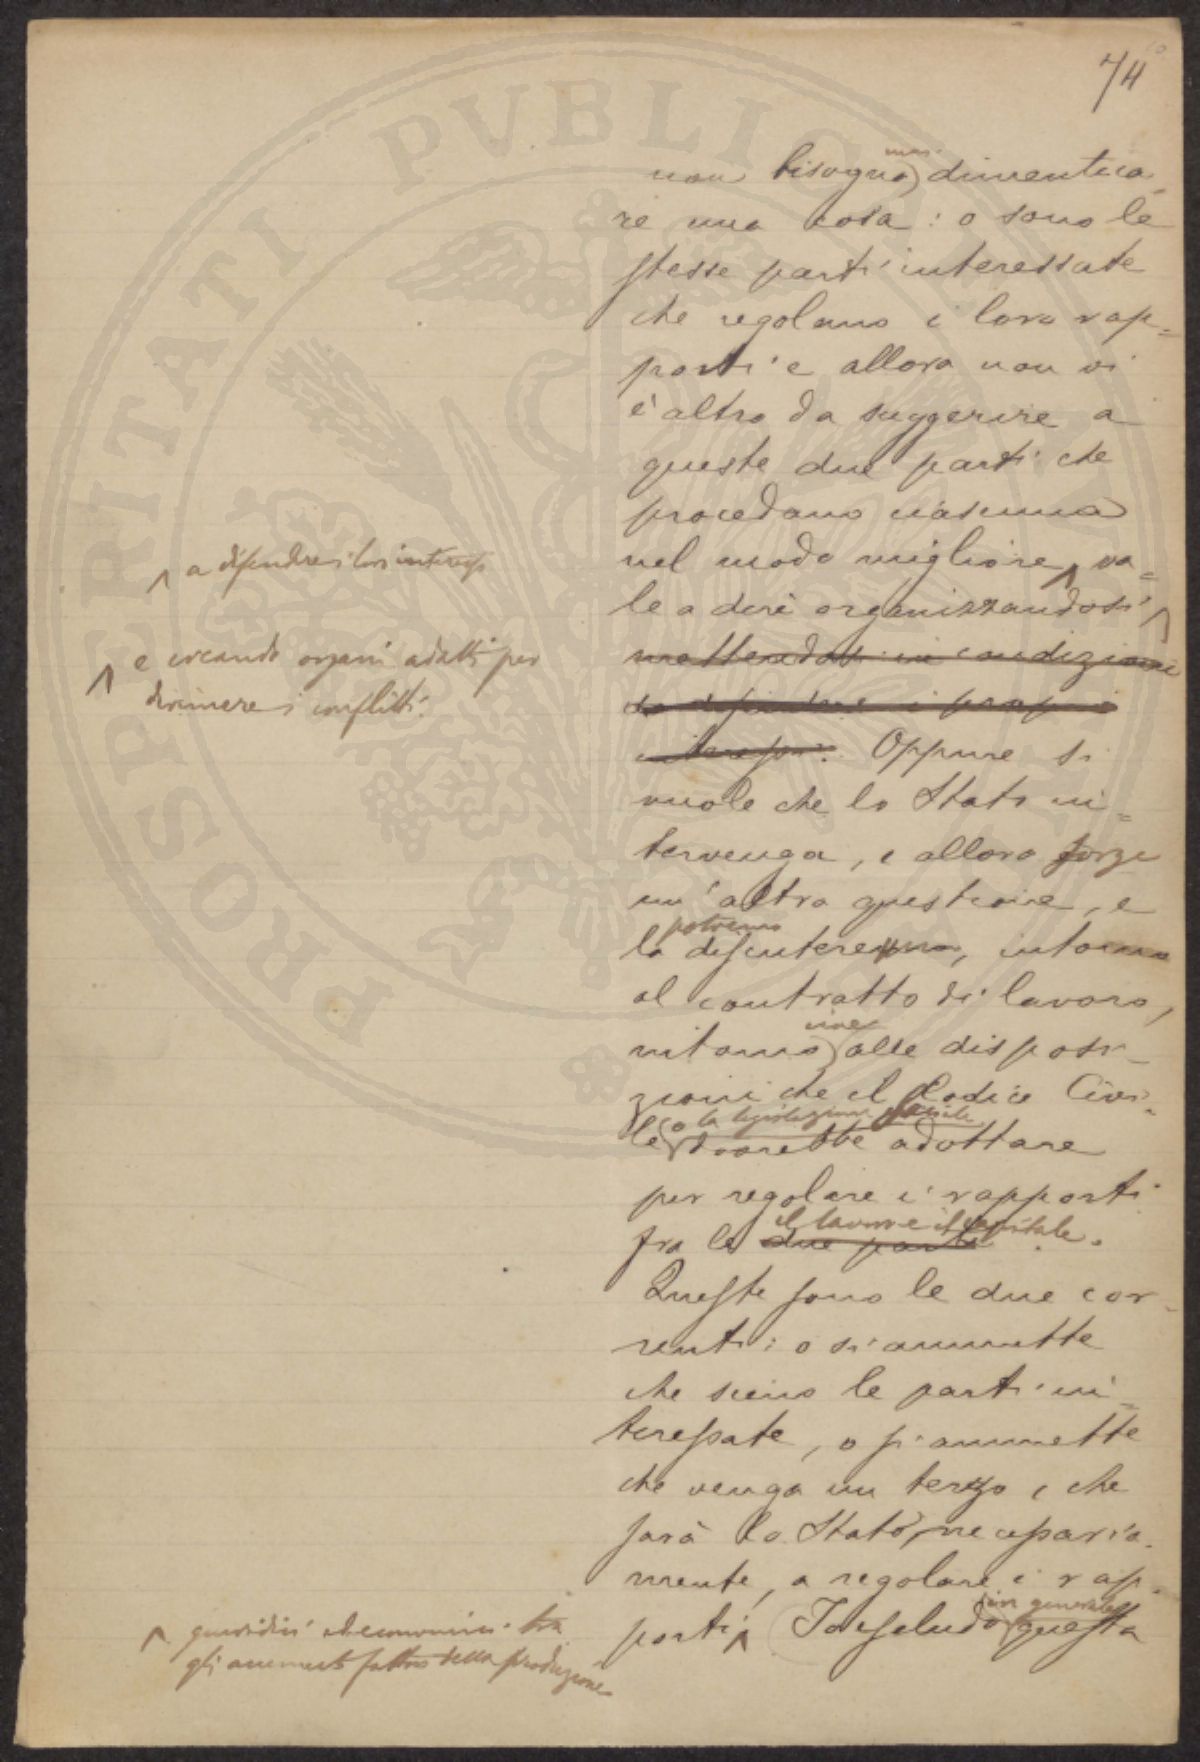 74
non bisogna mai dimentica-
re una cosa: o sono le
stesse parti interessate
che regolano i loro rap=
porti e allora non vi
è altro da suggerire a
queste due parti che
procedano ciascuna
nel modo migliore ^, va=
le a dire organizzandosi ^
mettendosi in condizioni
da difendere i propri
interessi. Oppure si
vuole che lo Stato in=
tervenga, e allora sorge
un'altra questione, e
potremo
la discutere, intorno
al contratto di lavoro,
intorno cioè alle disposi-
zioni che il Codice Civi-
o la legislazione sociale
le dovrebbe adottare
per regolare i rapporti
il lavoro e il capitale.
fra le due parti
Queste sono le due cor-
renti: o si ammette
che sieno le parti in-
teressate, o si ammette
che venga un terzo, che
sarà lo Stato, necessaria-
mente, a regolare i rap-
in generale
porti ^ Io escludo questa
^ a difendere i loro interessi
^ e creando organi adatti per
dirimere i conflitti.
^ giuridici ed economici tra
gli fattori della produzione
PROSPERITATI PVBLICAE